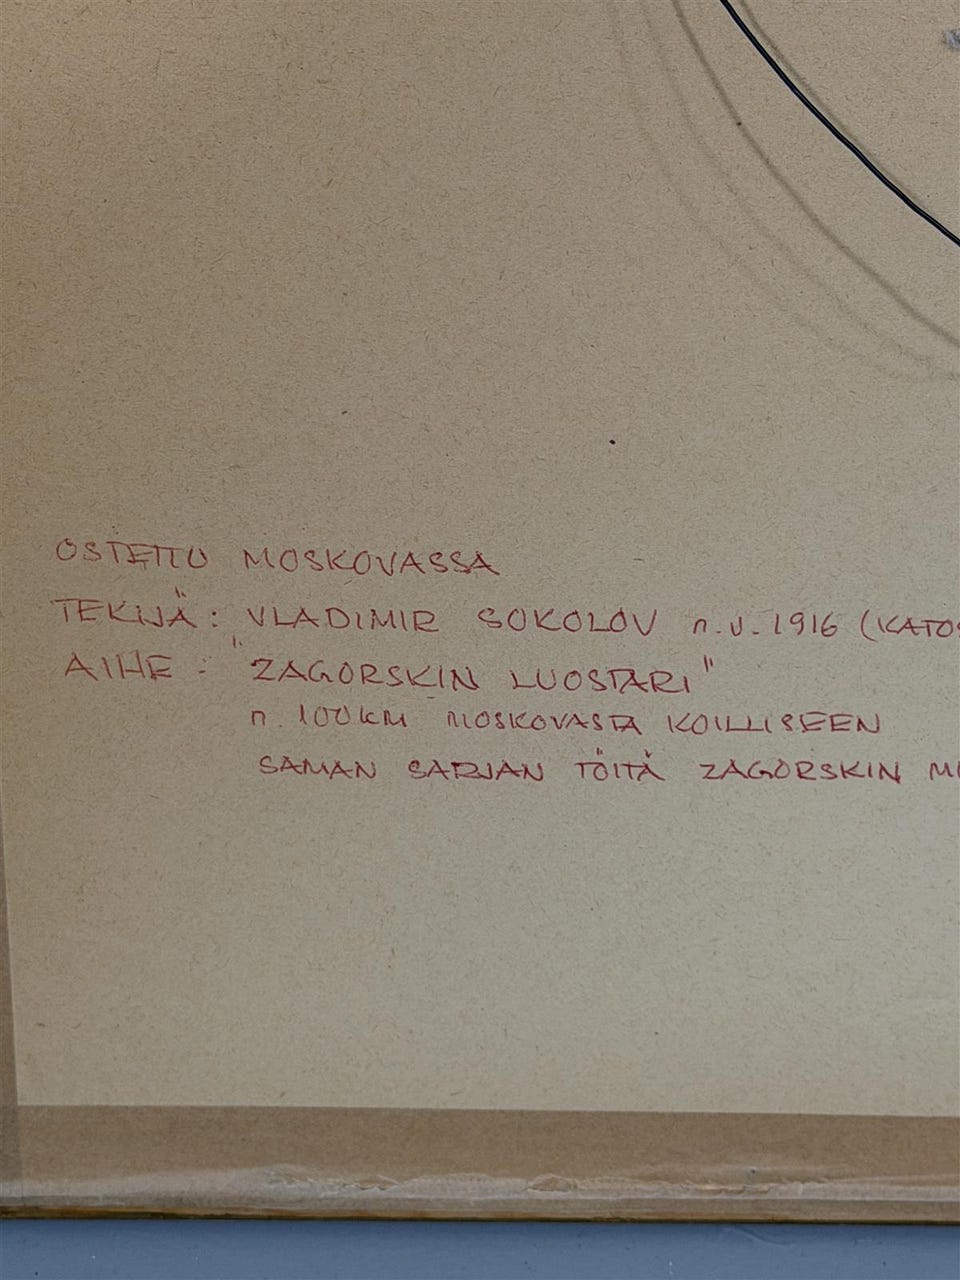 OSTETTU MOSKOVASSA
TEKIJÄ: VLADIMIR SOKOLOV n.v. 1916 (KATOS
AIHE: "ZAGORSKIN LUOSTARI"
n. 100 KM MOSKOVASTA KOILLISEEN
SAMAN SARJAN TÖITÄ ZAGORSKIN